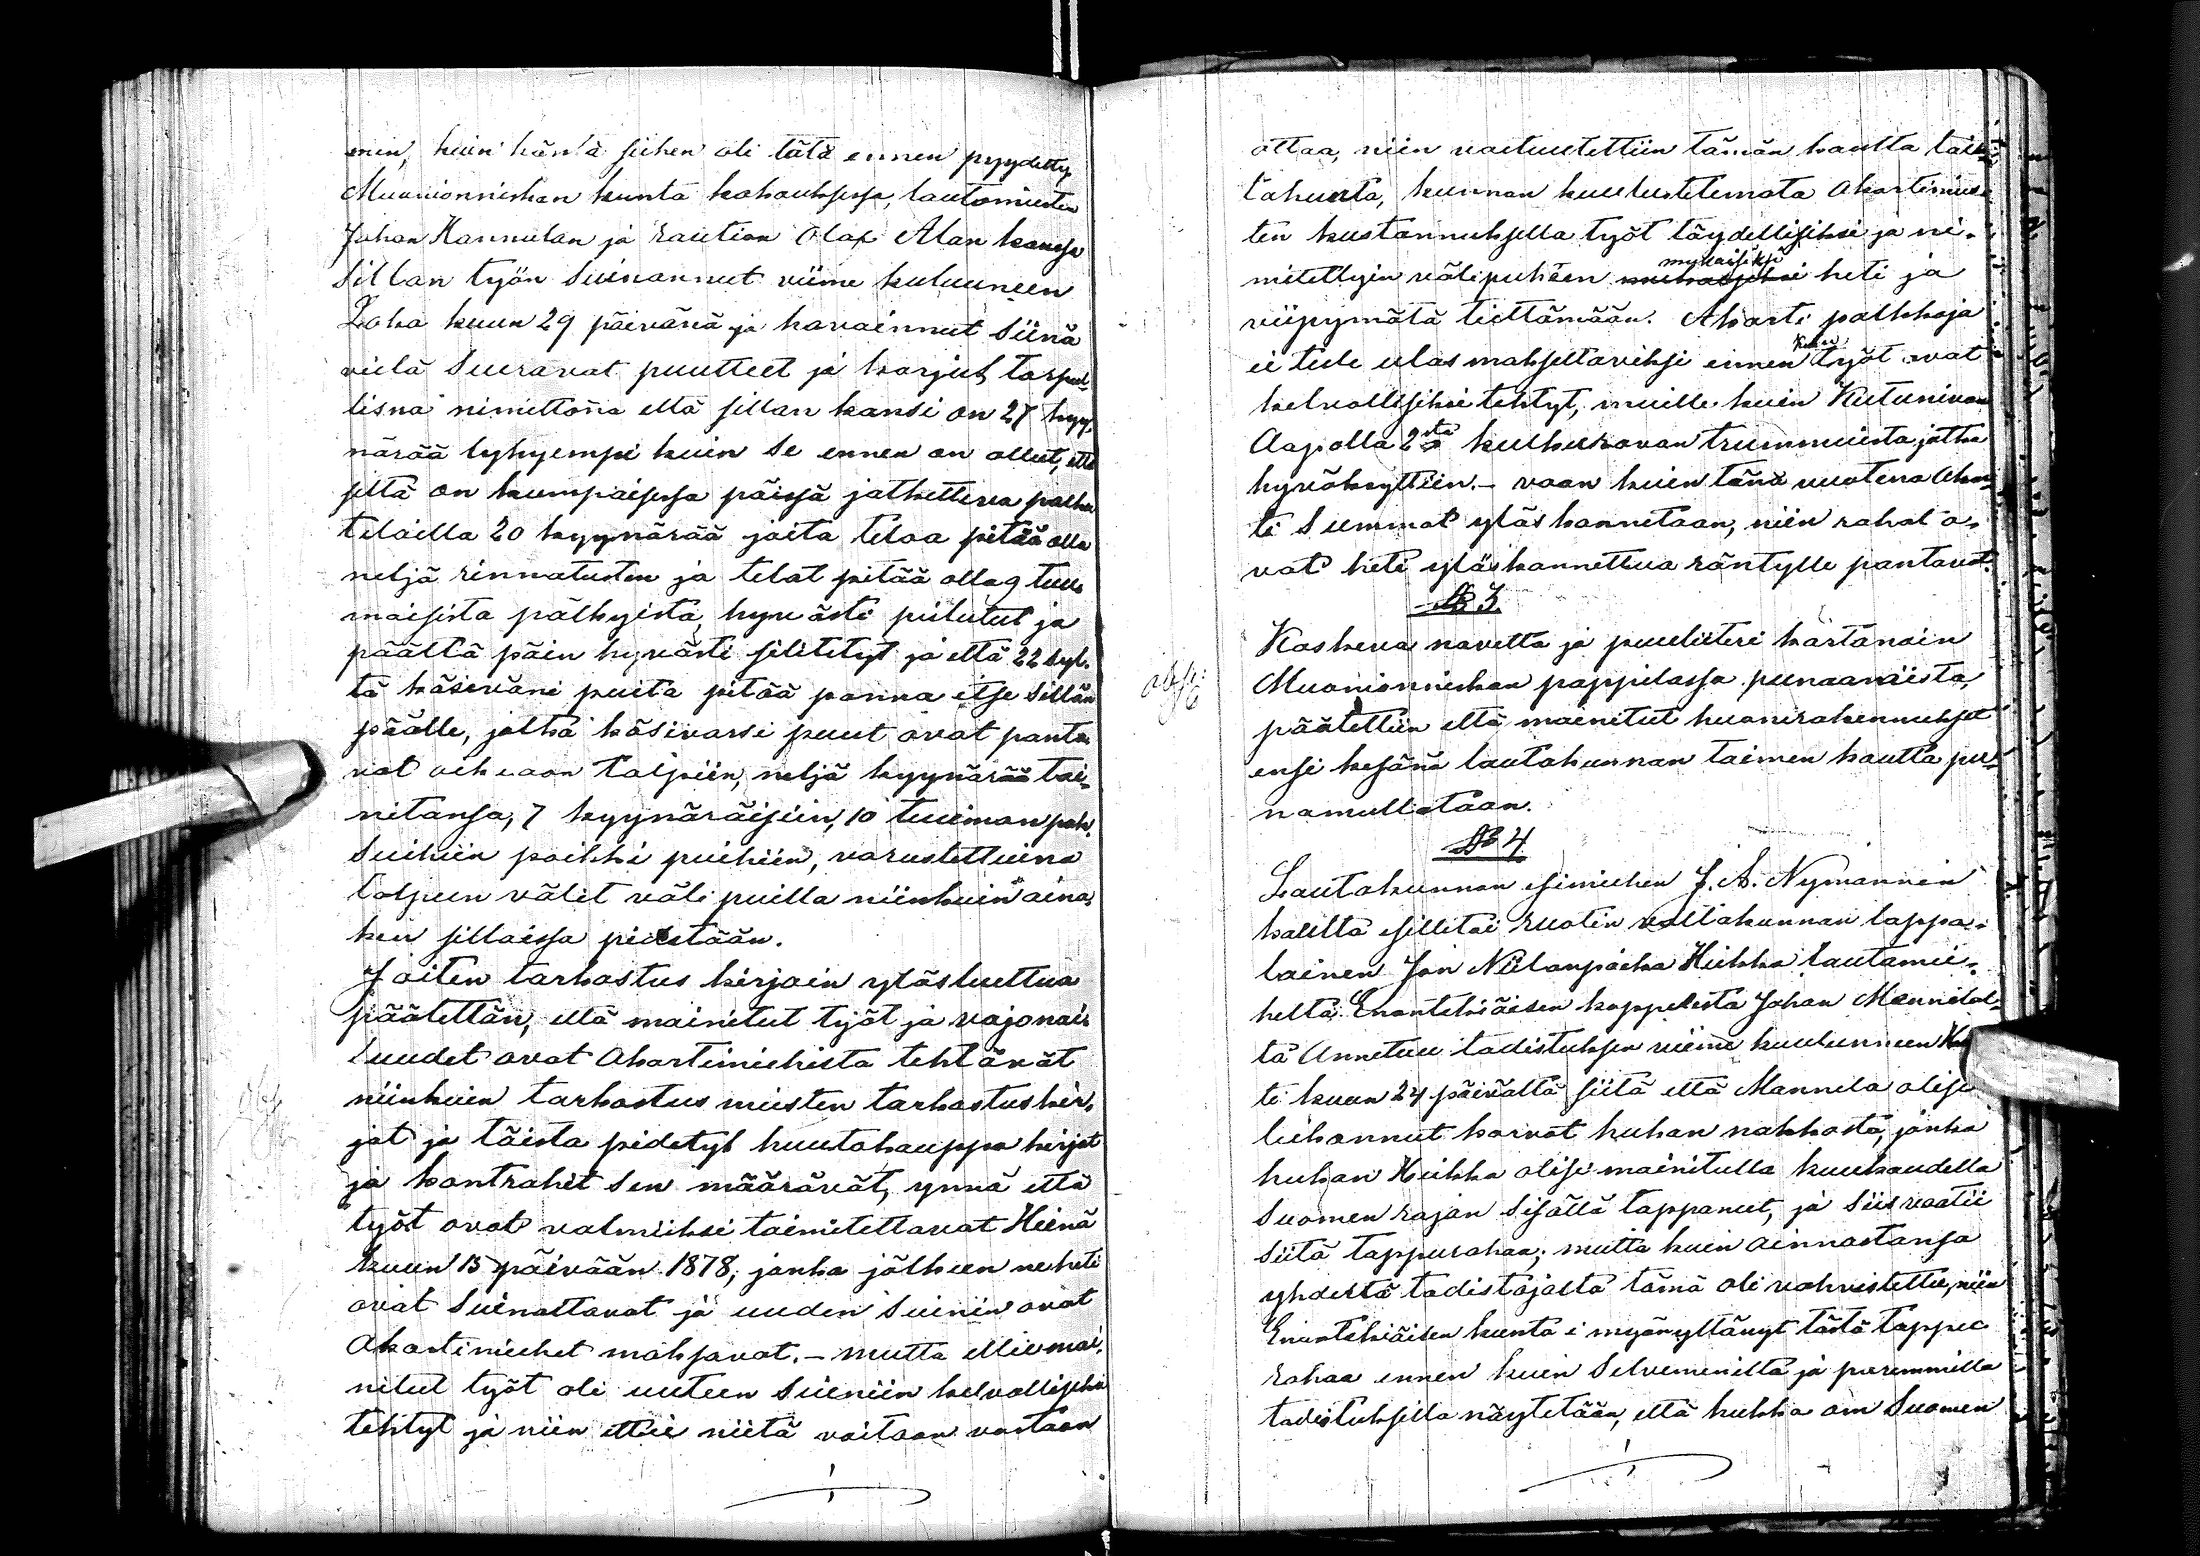 min, kuin häntä siihen oli tätä ennen pyydetty
Muonionniskan kunta kokouksessa, lautamiesten
Johan Hannulan ja raution Olof Alan kanssa
Sillan työn Siinannut viime kuluuneen
Loka kuun 29 päivänä ja havainnut siinä
vielä Seuravat puutteet ja korjut, tarpeel
lisna nimittäna että sillan kansi on 27 kyy,
närää lyhyempi kuin Se ennen on ollut, että
siltä on kumpaisessa päissä jatkettava palkki
teloilla 20 kyynärää joita teloa pitää olla
neljä rinnatusten ja telat pitää olla 9 tuu
maisista pälkyistä, hyvästi piilutut ja
päältä päin hyvästi silitetyt ja että 22 syl.
tä käsiväni puita pitää panna itse Sillan
päälle, jotka käsivarsi puut ovat panta
vat oikeaan tolpiin, neljä kyynärää toi-
nitansa, 7 kyynäräisiin, 10 tuuman pak,
Suihiin poikki puihiin, varustettuina
tolpeen välit väli puilla niinkuin aina,
kin sillaissa pidetään.
Joiten tarkastus kirjain ylösluettua
päätettän, että mainitut työt ja vajonai
luudet ovat Akortimiehista tehtävät
niinkuin tarkastus miesten tarkastus kir,
jat ja täista pidetyt huutokauppa kirjat
ja kontrahit sen määrävät, ynnä että
työt ovat valmiiksi toimitettavat Heinä
kuun 15 päivään 1878, jonka jälkeen ne heti
ovat Siinattavat ja uuden Siinin ovat
Akortimiehet maksavat. – mutta ellie mai,
nitut työt oli uuteen Siiniin kelvollijeksi
tehtyt ja niin ettei niitä voitaan vastaan
ottaa, niin vastuutettiin tämän kautta lau
takunta, kunnan kuulustelemata Akortimies
ten kustannuksella työt täydellisiksi ja ni-
mitettyin välipuheen mykaiseksi heti ja
viipymätä tiettämään. Akorti palkkoja
ei tule ulos maksettaviksi ennen kuin työt ovat
kelvollisiksi tehtyt, muille kuin Kutunivan
Aapolla 2sta kulkuravan trummuista jotka
hyväksyttiin. – vaan kuin tänä vuotena Akor
ti Summat ylöskannetaan, niin rahat o-
vat heti ylöskannettua räntylle pantavat.
§ 3.
Koskeva navetta ja puuliiteri kartanoin
Muonionniskan pappilassa punaamista,
päätettiin että mainitut huonerakennukset
ensi kesänä lautakunnan taimen kautta pu-
namullataan.
§ 4
Lautakunnan esimiehen J. A. Nymannin
kautta esilletoi Ruotin valtakunnan lappa-
lainen Jon Niilanpoika Heikka lautamie-
heltä Enontekiäisen kappelista Johan Mannelal-
ta Annetuu todistuksen viime kuulunneen
ti kuun 24 päivältä siitä että Mannela olise
liikannut karvat hukan nahkasta, jonka
hukan Heikka olise mainitulla kuukaudella
Suomen rajan Sisällä tappanut, ja Siis vaatii
Siitä tappurahaa; mutta kuin ainnastansa
yhdeltä todistajalta tämä oli vahvistettu, niin
Enontekiäisen kunta i myönyltänyt tästä tappu
rahaa ennen kuin Selvemmiltä ja paremmilla
todistuksilla näytetään, että hukka om Suomen